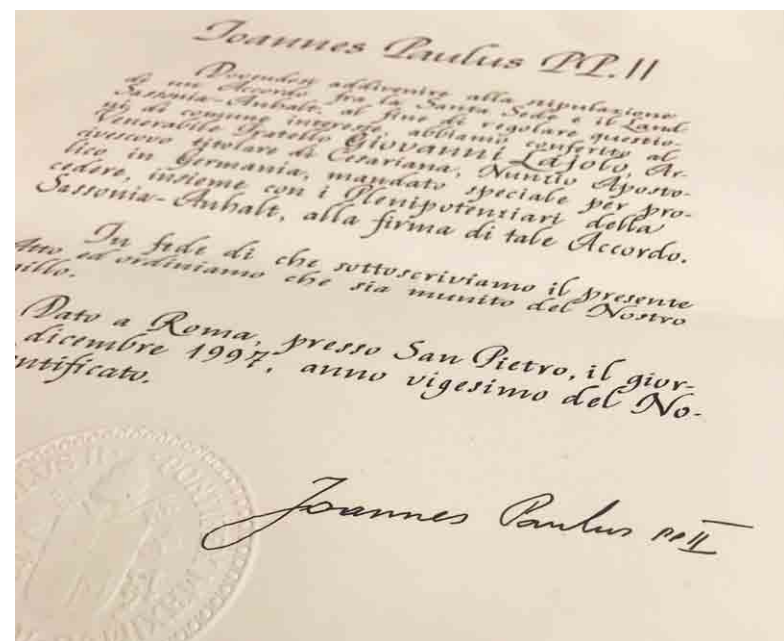 Joannes Paulus PP. II
Dovendosi addivenire alla stipulazione
di un Accordo fra la Santa Sede e il Land
Sassonia-Anhalt, al fine di regolare questio-
ni di comune interesse, abbiamo conferito al
Venerabile Fratello Giovanni Lajolo, Ar-
civescovo titolare di Cesariana, Nunzio Aposto-
lico in Germania, mandato speciale per pro-
cedere, insieme con i Plenipotenziari della
Sassonia-Anhalt, alla firma di tale Accordo.
In fede di che sottoscriviamo il presente
Atto ed ordiniamo che sia munito del Nostro
gillo.
Dato a Roma, presso San Pietro, il gior-
dicembre 1997, anno vigesimo del No-
ntificato.
Joannes Paulus PP II